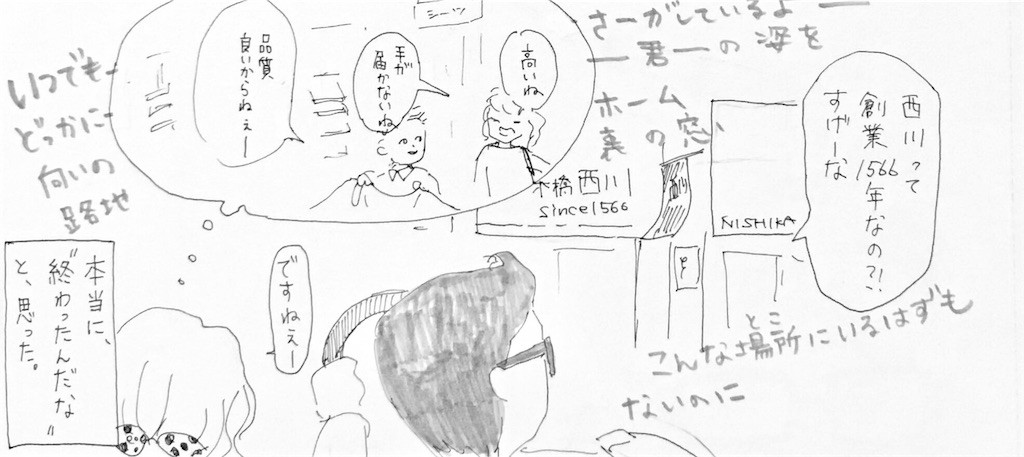 西川って
創業1566年なの?!
すげーな
さーがしているよ ー
ー 君 ー の 姿を
ホーム
裏 の 窓、
シーツ
高いね
手が
届かないね
品質
良いからねぇー
いつでもー
どっかにー
向いの
路地
橋西川
since1566
NISHIKA
ですねぇー
こんな場所にいるはずも
とこ
ないのに
本当に、
"終わったんだな"
と、思った。